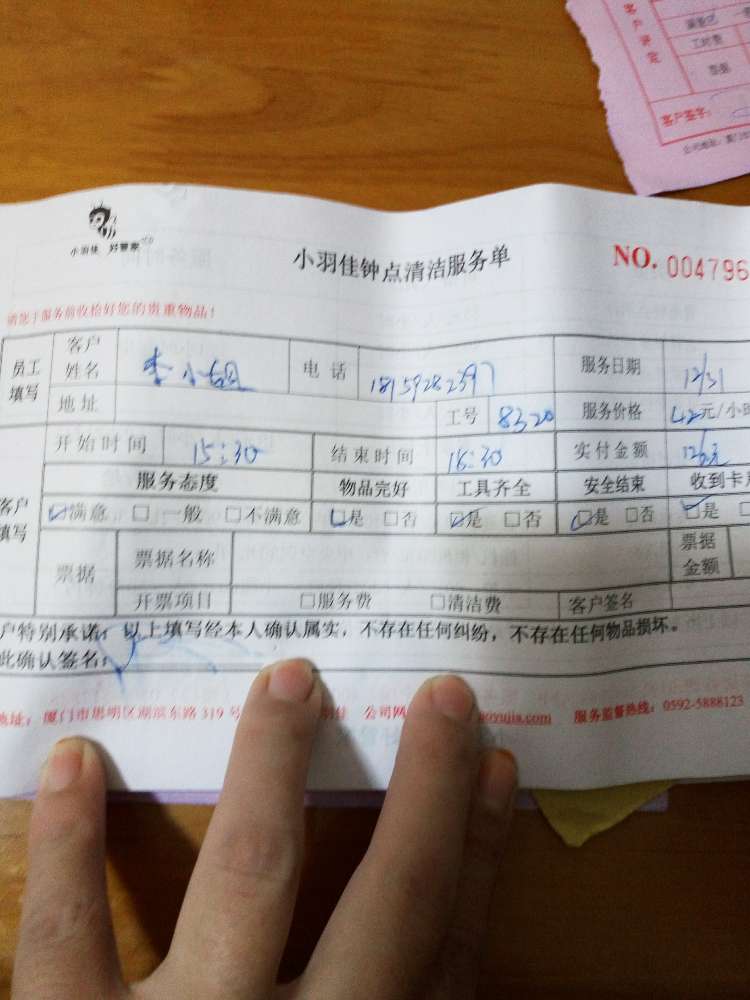 客户评定
工时费
票据
客户签字：
小羽佳 好管家
小羽佳钟点清洁服务单
NO. 004796
请您于服务前收拾好您的贵重物品！
员工填写 客户姓名 李小姐 电话 18159282397 服务日期 12/31
地址 工号 8320 服务价格 42元/小时
客户填写 开始时间 15:30 结束时间 18:30 实付金额 126元
服务态度 物品完好 工具齐全 安全结束
满意 一般 不满意 是 否 是 否 是 否 是
票据 票据名称 票据金额
开票项目 服务费 清洁费 客户签名
户特别承诺：以上填写经本人确认属实，不存在任何纠纷，不存在任何物品损坏。
此确认签名：
地址：厦门市思明区湖滨东路 319 号 公司网 oyujia.com 服务监督热线：0592-5888123